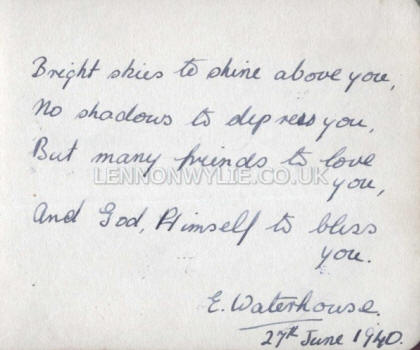 Bright skies to shine above you,
No shadows to depress you,
But many friends to love
you,
LENNONWYLIE.CO.UK
And God, Himself to bless
you.
E. Waterhouse.
27th June 1940.